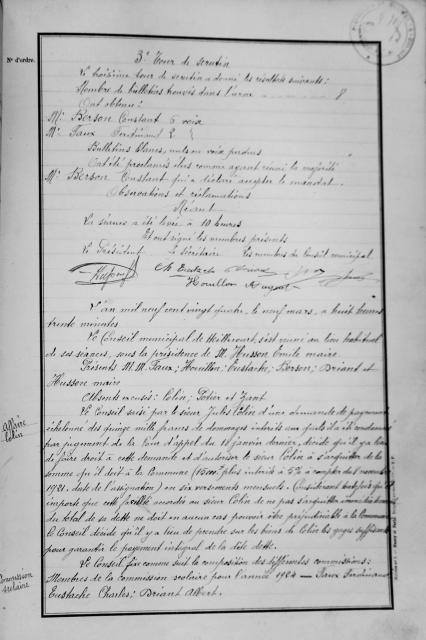 N° d'ordre.
3e Tour de scrutin
Le troisième tour de scrutin a donné les résultats suivants :
Nombre de bulletins trouvés dans l'urne 8
Ont obtenu :
Mr Berson Constant 6 voix
Mr Faux Ferdinand 2
Bulletins blancs, nuls ou voix perdues "
Ont été proclamés élus comme ayant réuni la majorité
Mr Berson Constant qui a déclaré accepter le mandat.
Observations et réclamations
Néant
La séance a été levée à 10 heures
Et ont signé les membres présents
Le Président Le Secrétaire Les membres du Conseil municipal
Ch Eustache Briant
Houillon
L'an mil neuf cent vingt quatre, le neuf mars, à huit heures
trente minutes
Le Conseil municipal de s'est réuni au lieu habituel
de ses séances, sous la présidence de M. Husson Emile maire.
Présents M.M. Faux ; Houillon ; Eustache ; Berson ; Briant et
Husson maire
Absents excusés : Colin ; Potier et
Le Conseil saisi par le sieur Jules Colin d'une demande de payement
échelonné des quinze mille francs de dommages intérêts auxquels il a été condamné
par jugement de la Cour d'appel du 18 janvier dernier, décide qu'il y a lieu
de faire droit à cette demande et d'autoriser le sieur Colin à s'acquitter de la
somme qu'il doit à la Commune (15000f plus intérêts à 5% à compter du
1921, date de l'assignation) en six versements mensuels. Considérant toutefois qu'il
importe que cette facilité accordée au sieur Colin de ne pas s'acquitter
du total de sa dette ne doit en aucun cas pouvoir être préjudiciable à la Commune
Le Conseil décide qu'il y a lieu de prendre sur les biens de Colin les gages suffisants
pour garantir le payement intégral de la dite dette.
Le Conseil fixe comme suit la composition des différentes commissions :
Membres de la commission scolaire pour l'année 1924 — Faux Ferdinand
Eustache Charles ; Briant Albert.
Affaire
Colin
Commission
scolaire